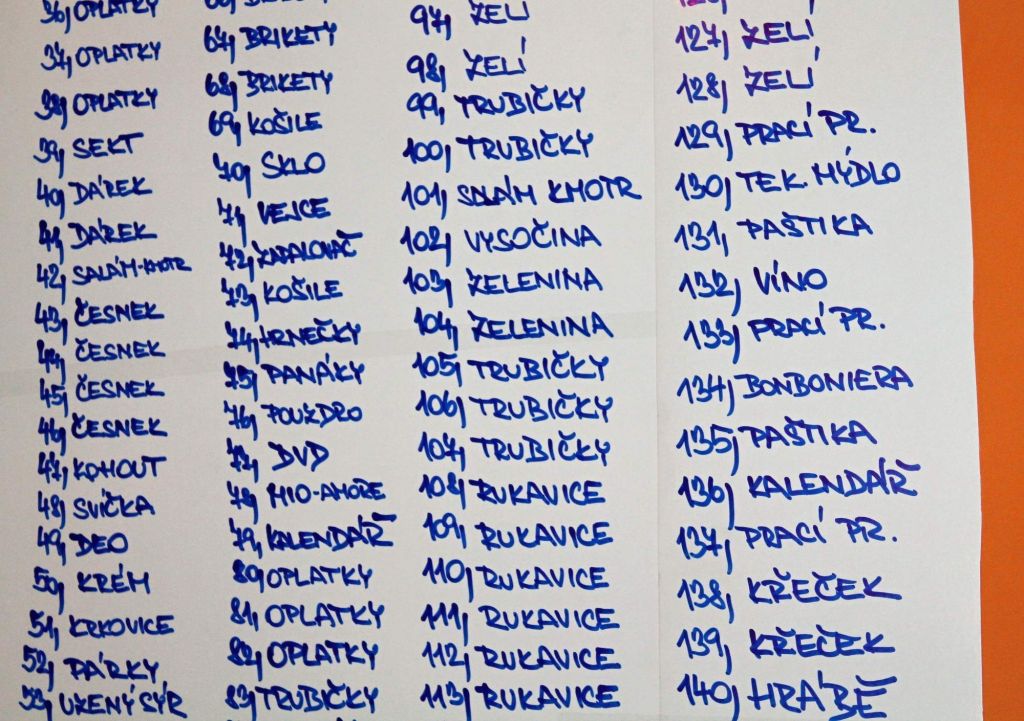 36, OPLATKY
37, OPLATKY
38, OPLATKY
39, SEKT
40, DÁREK
41, DÁREK
42, SALÁM-KMOTR
43, ČESNEK
44, ČESNEK
45, ČESNEK
46, ČESNEK
47, KOHOUT
48, SVÍČKA
49, DEO
50, KRÉM
51, KRKOVICE
52, PÁRKY
53, UZENÝ SÝR
67, BRIKETY
68, BRIKETY
69, KOŠILE
70, SKLO
71, VEJCE
72, ZAPALOVAČ
73, KOŠILE
74, HRNEČKY
75, PANÁKY
76, POUZDRO
77, DVD
78, MIO-AMORE
79, KALENDÁŘ
80, OPLATKY
81, OPLATKY
82, OPLATKY
83, TRUBIČKY
97, ZELÍ
98, ZELÍ
99, TRUBIČKY
100, TRUBIČKY
101, SALÁM KMOTR
102, VYSOČINA
103, ZELENINA
104, ZELENINA
105, TRUBIČKY
106, TRUBIČKY
107, TRUBIČKY
108, RUKAVICE
109, RUKAVICE
110, RUKAVICE
111, RUKAVICE
112, RUKAVICE
113, RUKAVICE
127, ZELÍ
128, ZELÍ
129, PRACÍ PR.
130, TEK. MÝDLO
131, PAŠTIKA
132, VÍNO
133, PRACÍ PR.
134, BONBONIERA
135, PAŠTIKA
136, KALENDÁŘ
137, PRACÍ PR.
138, KŘEČEK
139, KŘEČEK
140, HRÁBĚ